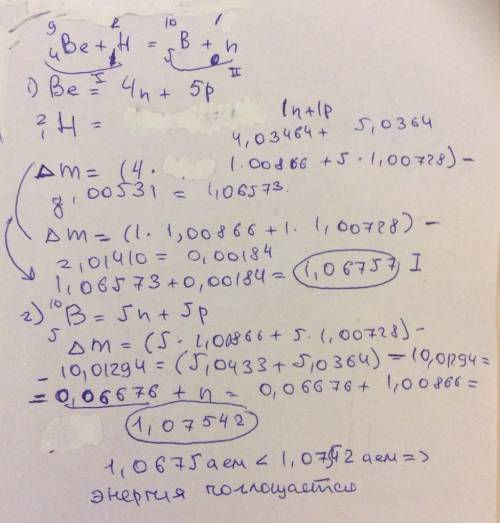 ⁹₄Be + ²₁H = ¹⁰₅B + ¹n
I II
1) Be = 4n + 5p
²₁H = 1n+1p
4,03464 + 5,0364
Δm = (4 · 1.00866 + 5 · 1,00728) –
,00531 = 1,06573.
Δm = (1. 1,00866 + 1. 1,00728) –
2,01410 = 0,00184
1,06573 + 0,00184 = 1,06757 I
2) ¹⁰₅B = 5n + 5p
Δm = (5 · 1,00866 + 5 · 1,00728) –
– 10,01294 = (5,0433 + 5,0364) – 10,01294 =
= 0,06676 + n = 0,06676 + 1,00866 =
1,07542
1,0675 аем < 1,0752 аем =>
энергия поглощается